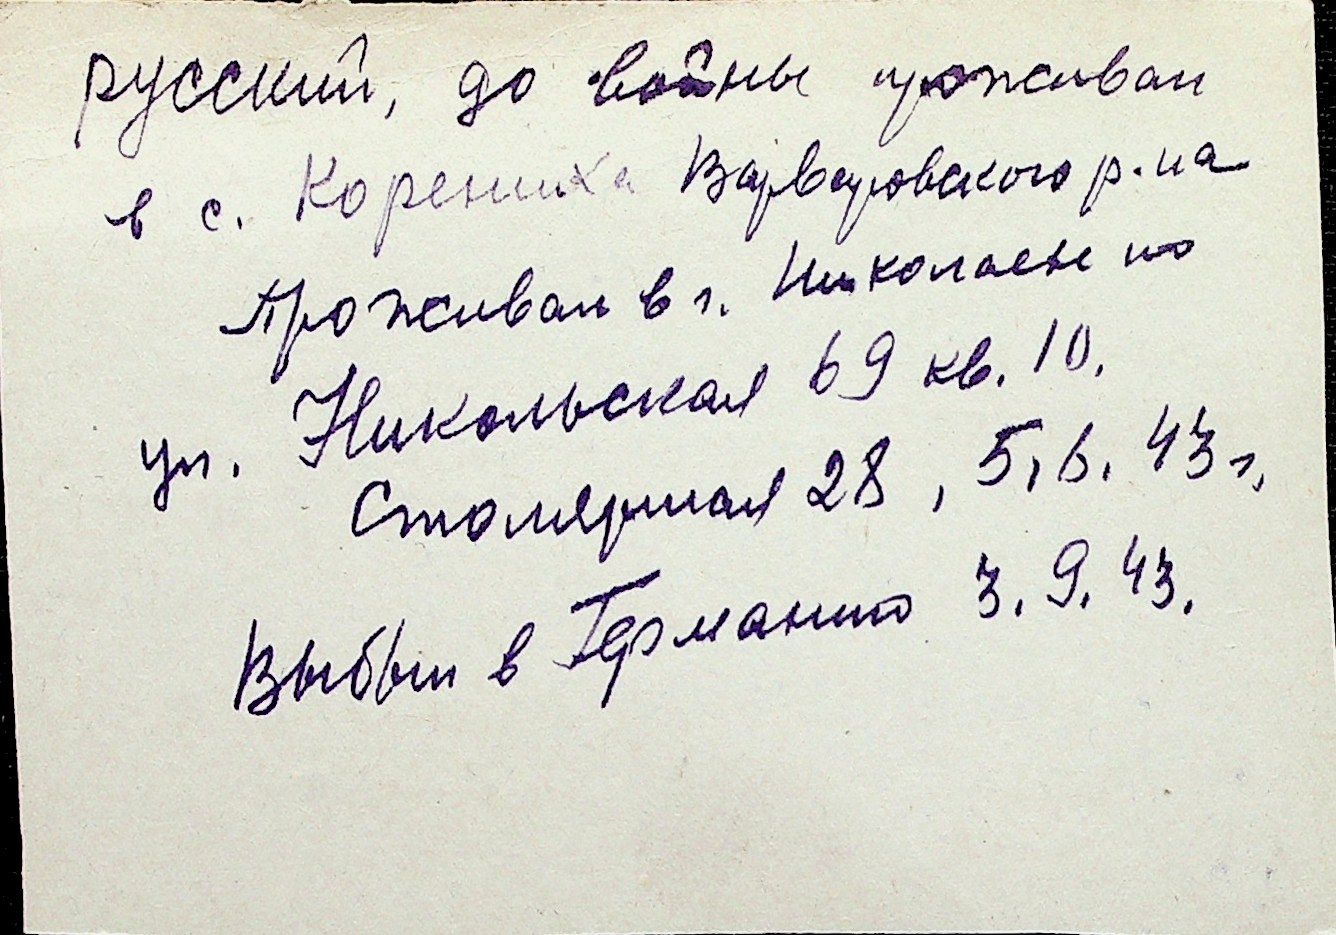 русский, до войны проживал
в с. Корениха Варваровского р-на
Проживал в г. Николаеве по
ул. Никольская 69 кв. 10.
Столярная 28, 5.6.43 г.
Выбыл в Германию 3.9.43.